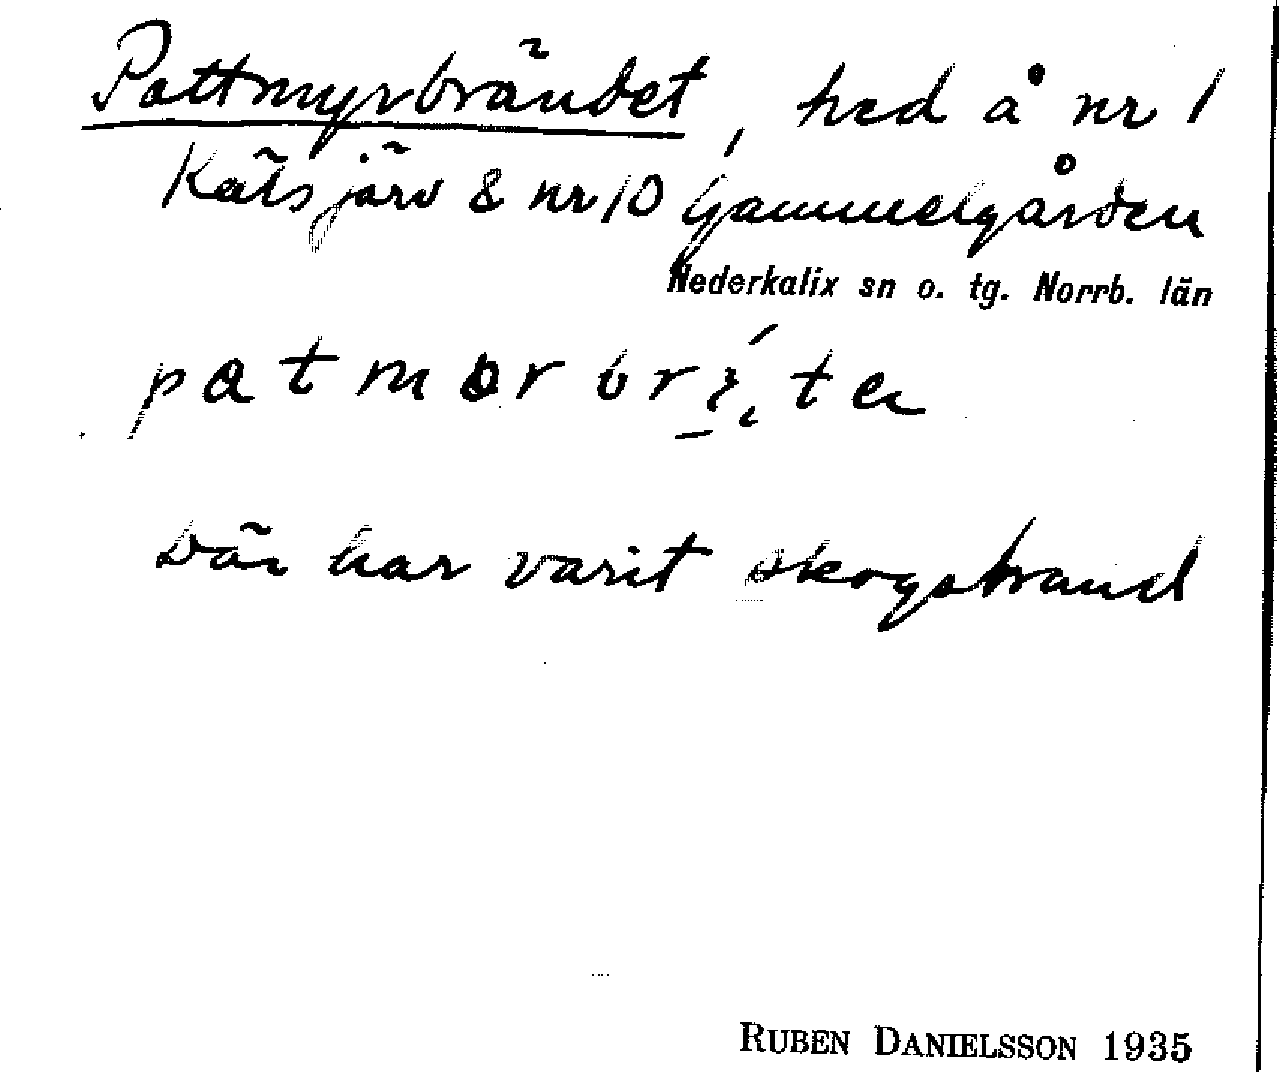 Pattmyrbrändet, hed å nr 1
Kätsjärv & nr 10 Gammelgården
Nederkalix sn o. tg. Norrb. län
Där har varit skogsbrand
RUBEN DANIELSSON 1935